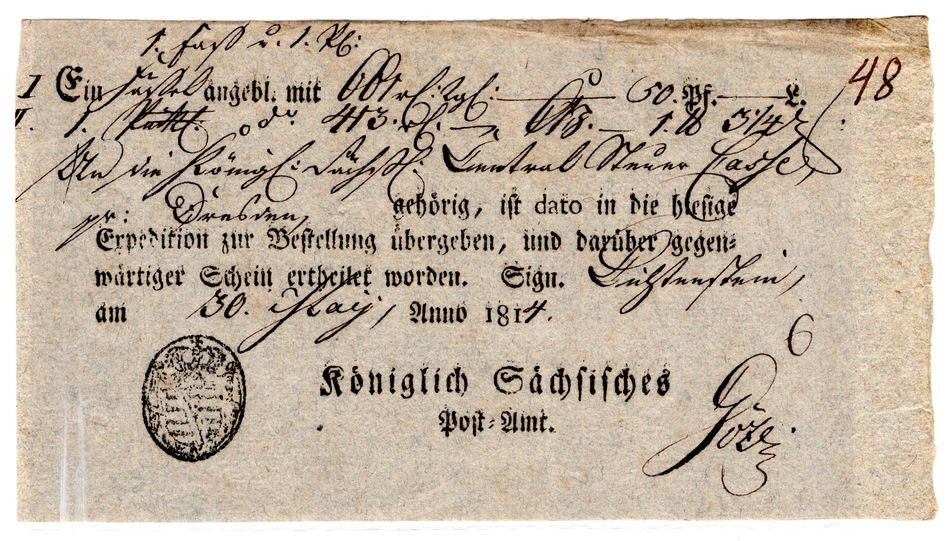 1. Fass u. 1. P.:
I Ein Fässel angebl. mit rh: 50. Pf. L. 48
II. 1. do. 413. rh. 1. ℔ 3 1/4
An die Königl: Sächß: Central Steuer Casse,
pr: Dresden, gehörig, ist dato in die hiesige
Expedition zur Bestellung übergeben, und darüber gegen-
wärtiger Schein ertheilet worden. Sign. Lichtenstein,
am 30. May, Anno 1814.
6
Königlich Sächsisches
Post-Amt.
Göze.